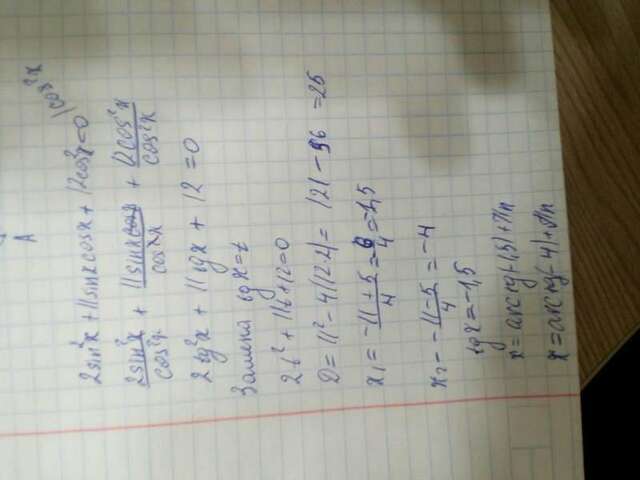 А
2sin²x + 11sinxcosx + 12cos²x=0 /cos²x
2sin²x/cos²x + 11sinxcosx/cos²x + 12cos²x/cos²x
2tg²x + 11tgx + 12 =0
Замена tgx=t
2t² + 11t+12=0
D= 11²-4(12·2)= 121-96 =25
x₁= -11+5/4 =-6/4=-1,5
x₂= -11-5/4 =-4
tgx=-1,5
x= arctg(-1,5)+πn
x= arctg(-4)+πn